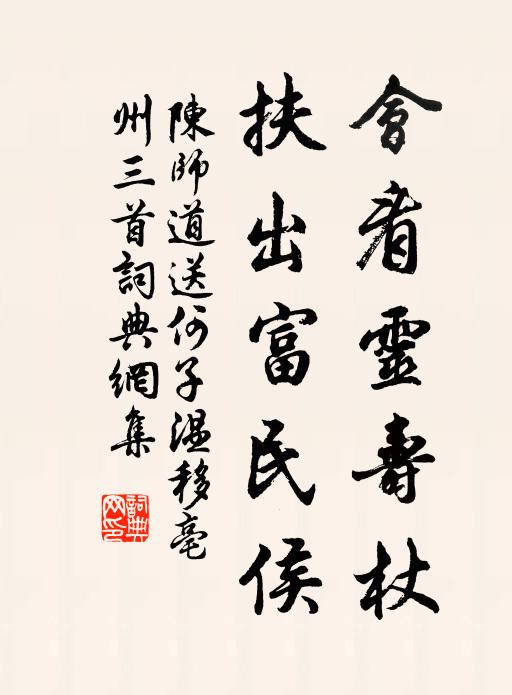 會看靈壽杖
扶出富民侯
陳師道送何子温移亳
州三首詞典網集
詞典
网印